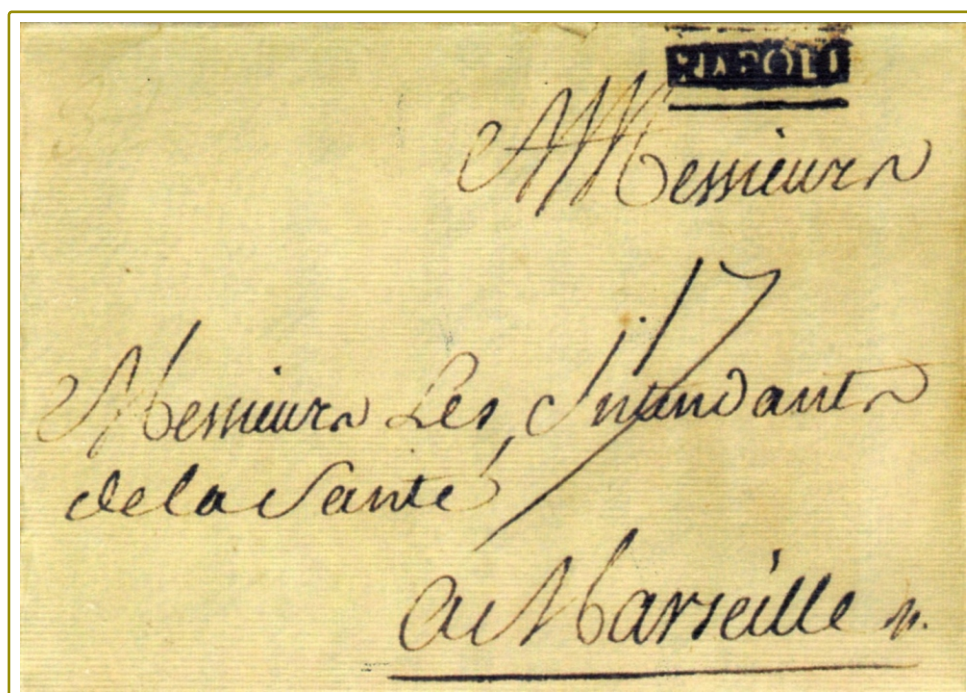 A Messieurs
17
Messieurs Les Intendants
de la Santé
a Marseille